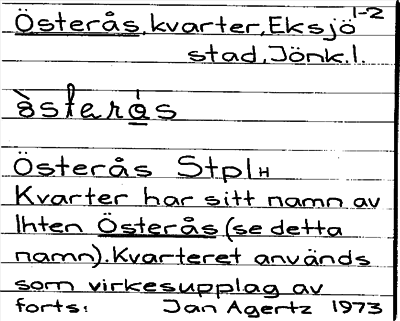 1-2
Österås, kvarter, Eksjö
stad, Jönk. l.
Österås Stpl H
Kvarter har sitt namn av
lhten Österås (se detta
namn). Kvarteret används
som virkesupplag av
forts: Jan Agertz 1973